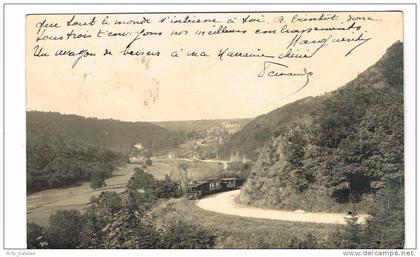 que tout le monde s'intéresse à toi. A bientôt donc
tous trois t'envoyons nos meilleurs embrassements
Marguerite
Un wagon de baisers à ma Marraine chérie
Fernande
www.delcampe.net
Willy_balasse